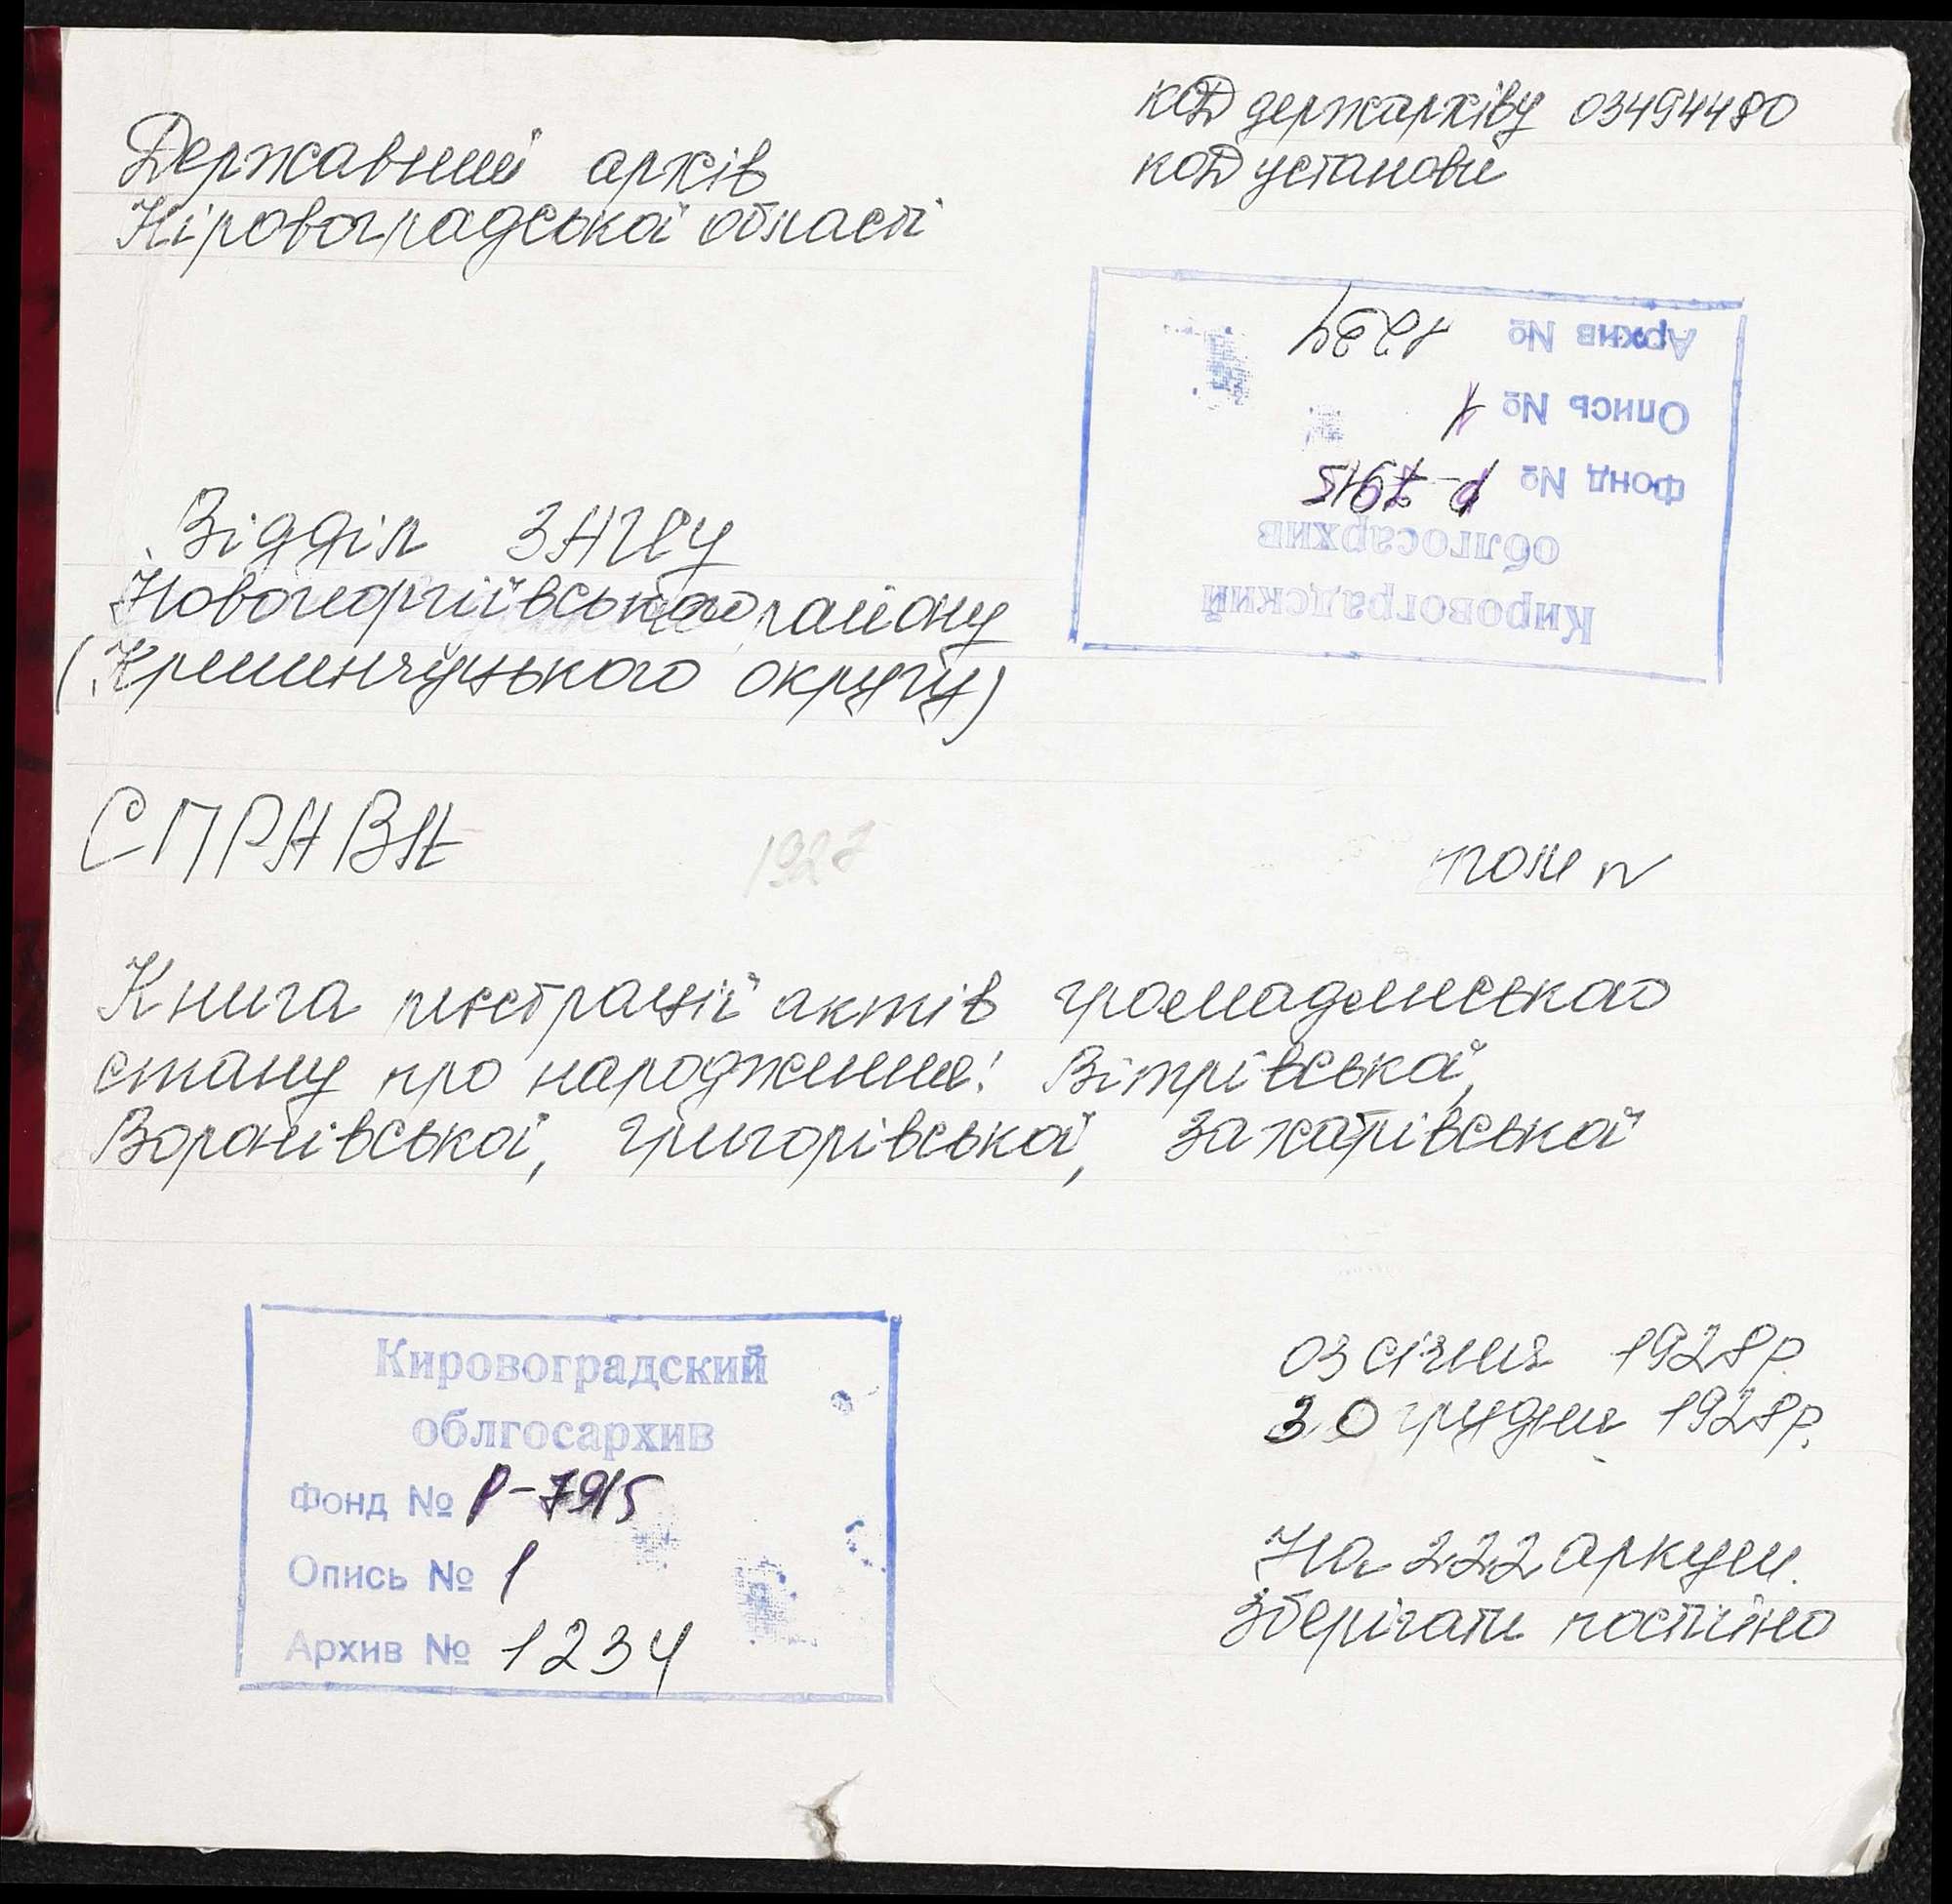 Державний архів
Кіровоградської області
код держархіву 03494480
код установи
Кировоградский
облгосархив
Фонд № Р-7915
Опись № 1
Архив № 1234
Відділ ЗАГСу
Новогеоргіївського району
(Кременчуцького округу)
СПРАВА
1927
том №
Книга реєстрації актів громадянського
стану про народження: Вітрівської,
Воронівської, Григорівської, Захарівської
Кировоградский
облгосархив
Фонд № Р-7915
Опись № 1
Архив № 1234
03 січня 1928р.
30 грудня 1928р.
На 222 аркуш.
Зберігати постійно